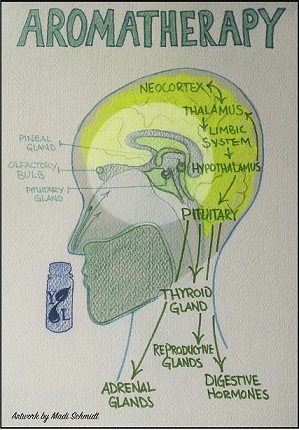 AROMATHERAPY
NEOCORTEX
THALAMUS
LIMBIC
SYSTEM
HYPOTHALAMUS
PINEAL
GLAND
OLFACTORY
BULB
PITUITARY
GLAND
PITUITARY
Y
L
THYROID
GLAND
REPRODUCTIVE
GLANDS
ADRENAL
GLANDS
DIGESTIVE
HORMONES
Artwork by Madi Schmidt